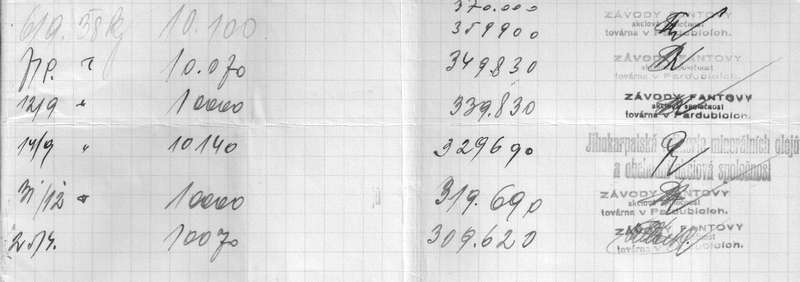 370.000
6/9. 38 10.100 359900 ZÁVODY FANTOVY
akciová společnost
továrna v Pardubicích.
10.070 349830 ZÁVODY FANTOVY
akciová společnost
továrna v Pardubicích.
12/9 " 10000 339.830 ZÁVODY FANTOVY
akciová společnost
továrna v Pardubicích.
14/9 " 10140 329690 Jihokarpatská minerálních olejů
a obchodní akciová společnost
31/12 " 10000 319.690 ZÁVODY FANTOVY
akciová společnost
továrna v Pardubicích.
10070 309.620 ZÁVODY FANTOVY
akciová společnost
továrna v Pardubicích.